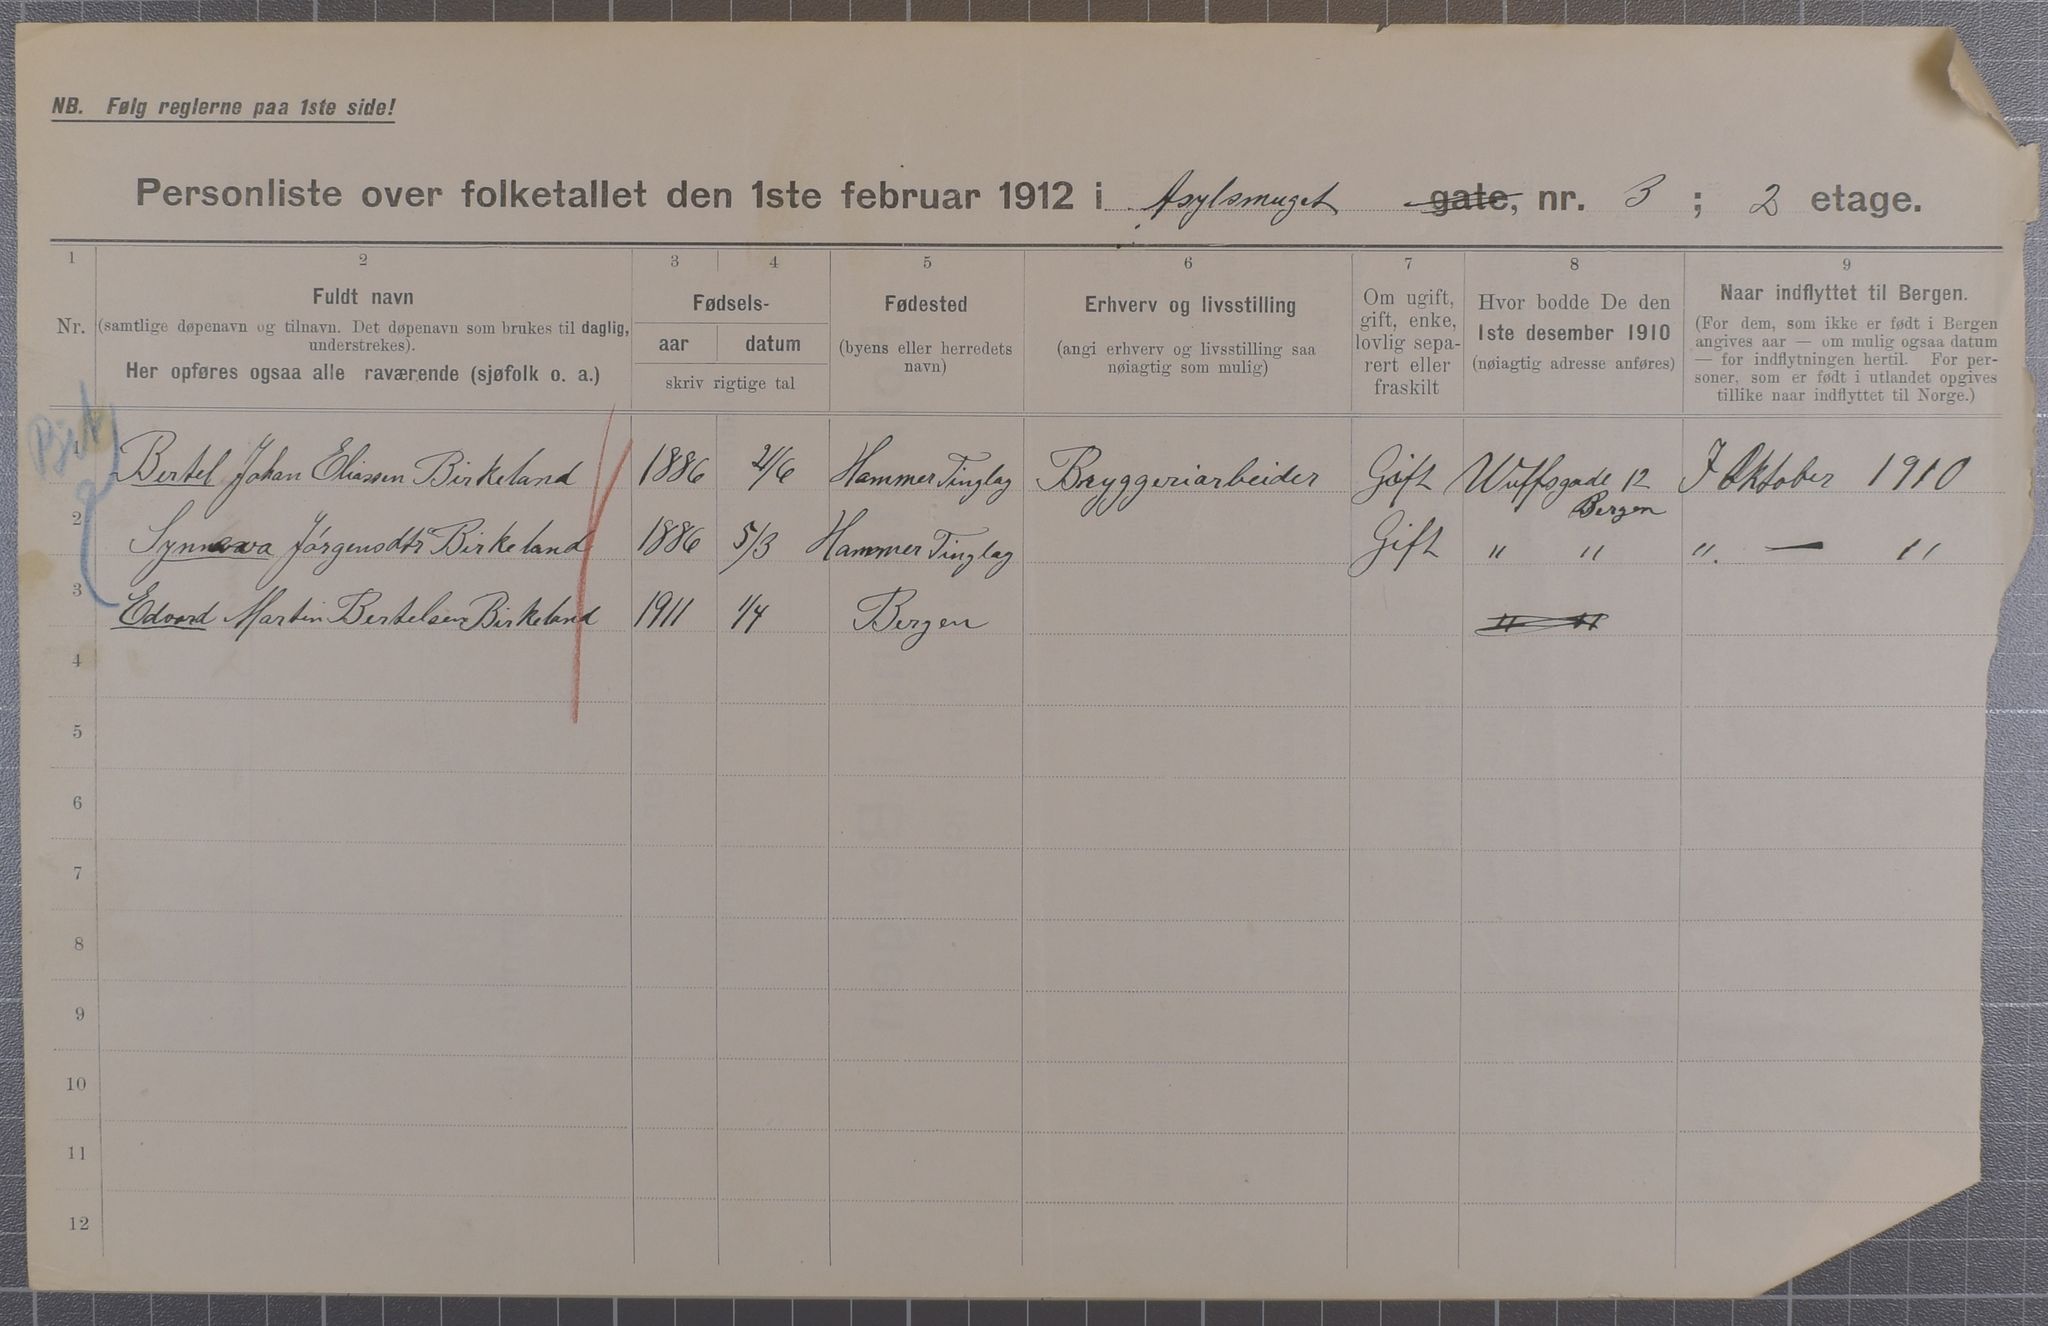 NB. Følg reglerne paa 1ste side!
Personliste over folketallet den 1ste februar 1912 i Asylsmuget gate, nr. 3 ; 2 etage.
1 2 3 4 5 6 7 8 9
Nr.
Fuldt navn
(samtlige døpenavn og tilnavn. Det døpenavn som brukes til daglig,
understrekes).
Her opføres ogsaa alle raværende (sjøfolk o. a.)
Fødsels-
aar datum
skriv rigtige tal
Fødested
(byens eller herredets
navn)
Erhverv og livsstilling
(angi erhverv og livsstilling saa
nøiagtig som mulig)
Om ugift,
gift, enke,
lovlig sepa-
rert eller
fraskilt
Hvor bodde De den
1ste desember 1910
(nøiagtig adresse anføres)
Naar indflyttet til Bergen.
(For dem, som ikke er født i Bergen
angives aar — om mulig ogsaa datum
— for indflytningen hertil. For per-
soner, som er født i utlandet opgives
tillike naar indflyttet til Norge.)
Birk
1 Bertel Johan Eliassen Birkeland 1886 2/6 Hammer Tinglag Bryggeriarbeider Gift Wulfsgade 12 I Oktober 1910
Bergen
2 Synneva Jørgensdtr Birkeland 1886 5/3 Hammer Tinglag Gift " " " — "
3 Edvard Martin Bertelsen Birkeland 1911 1/4 Bergen " "
4
5
6
7
8
9
10
11
12